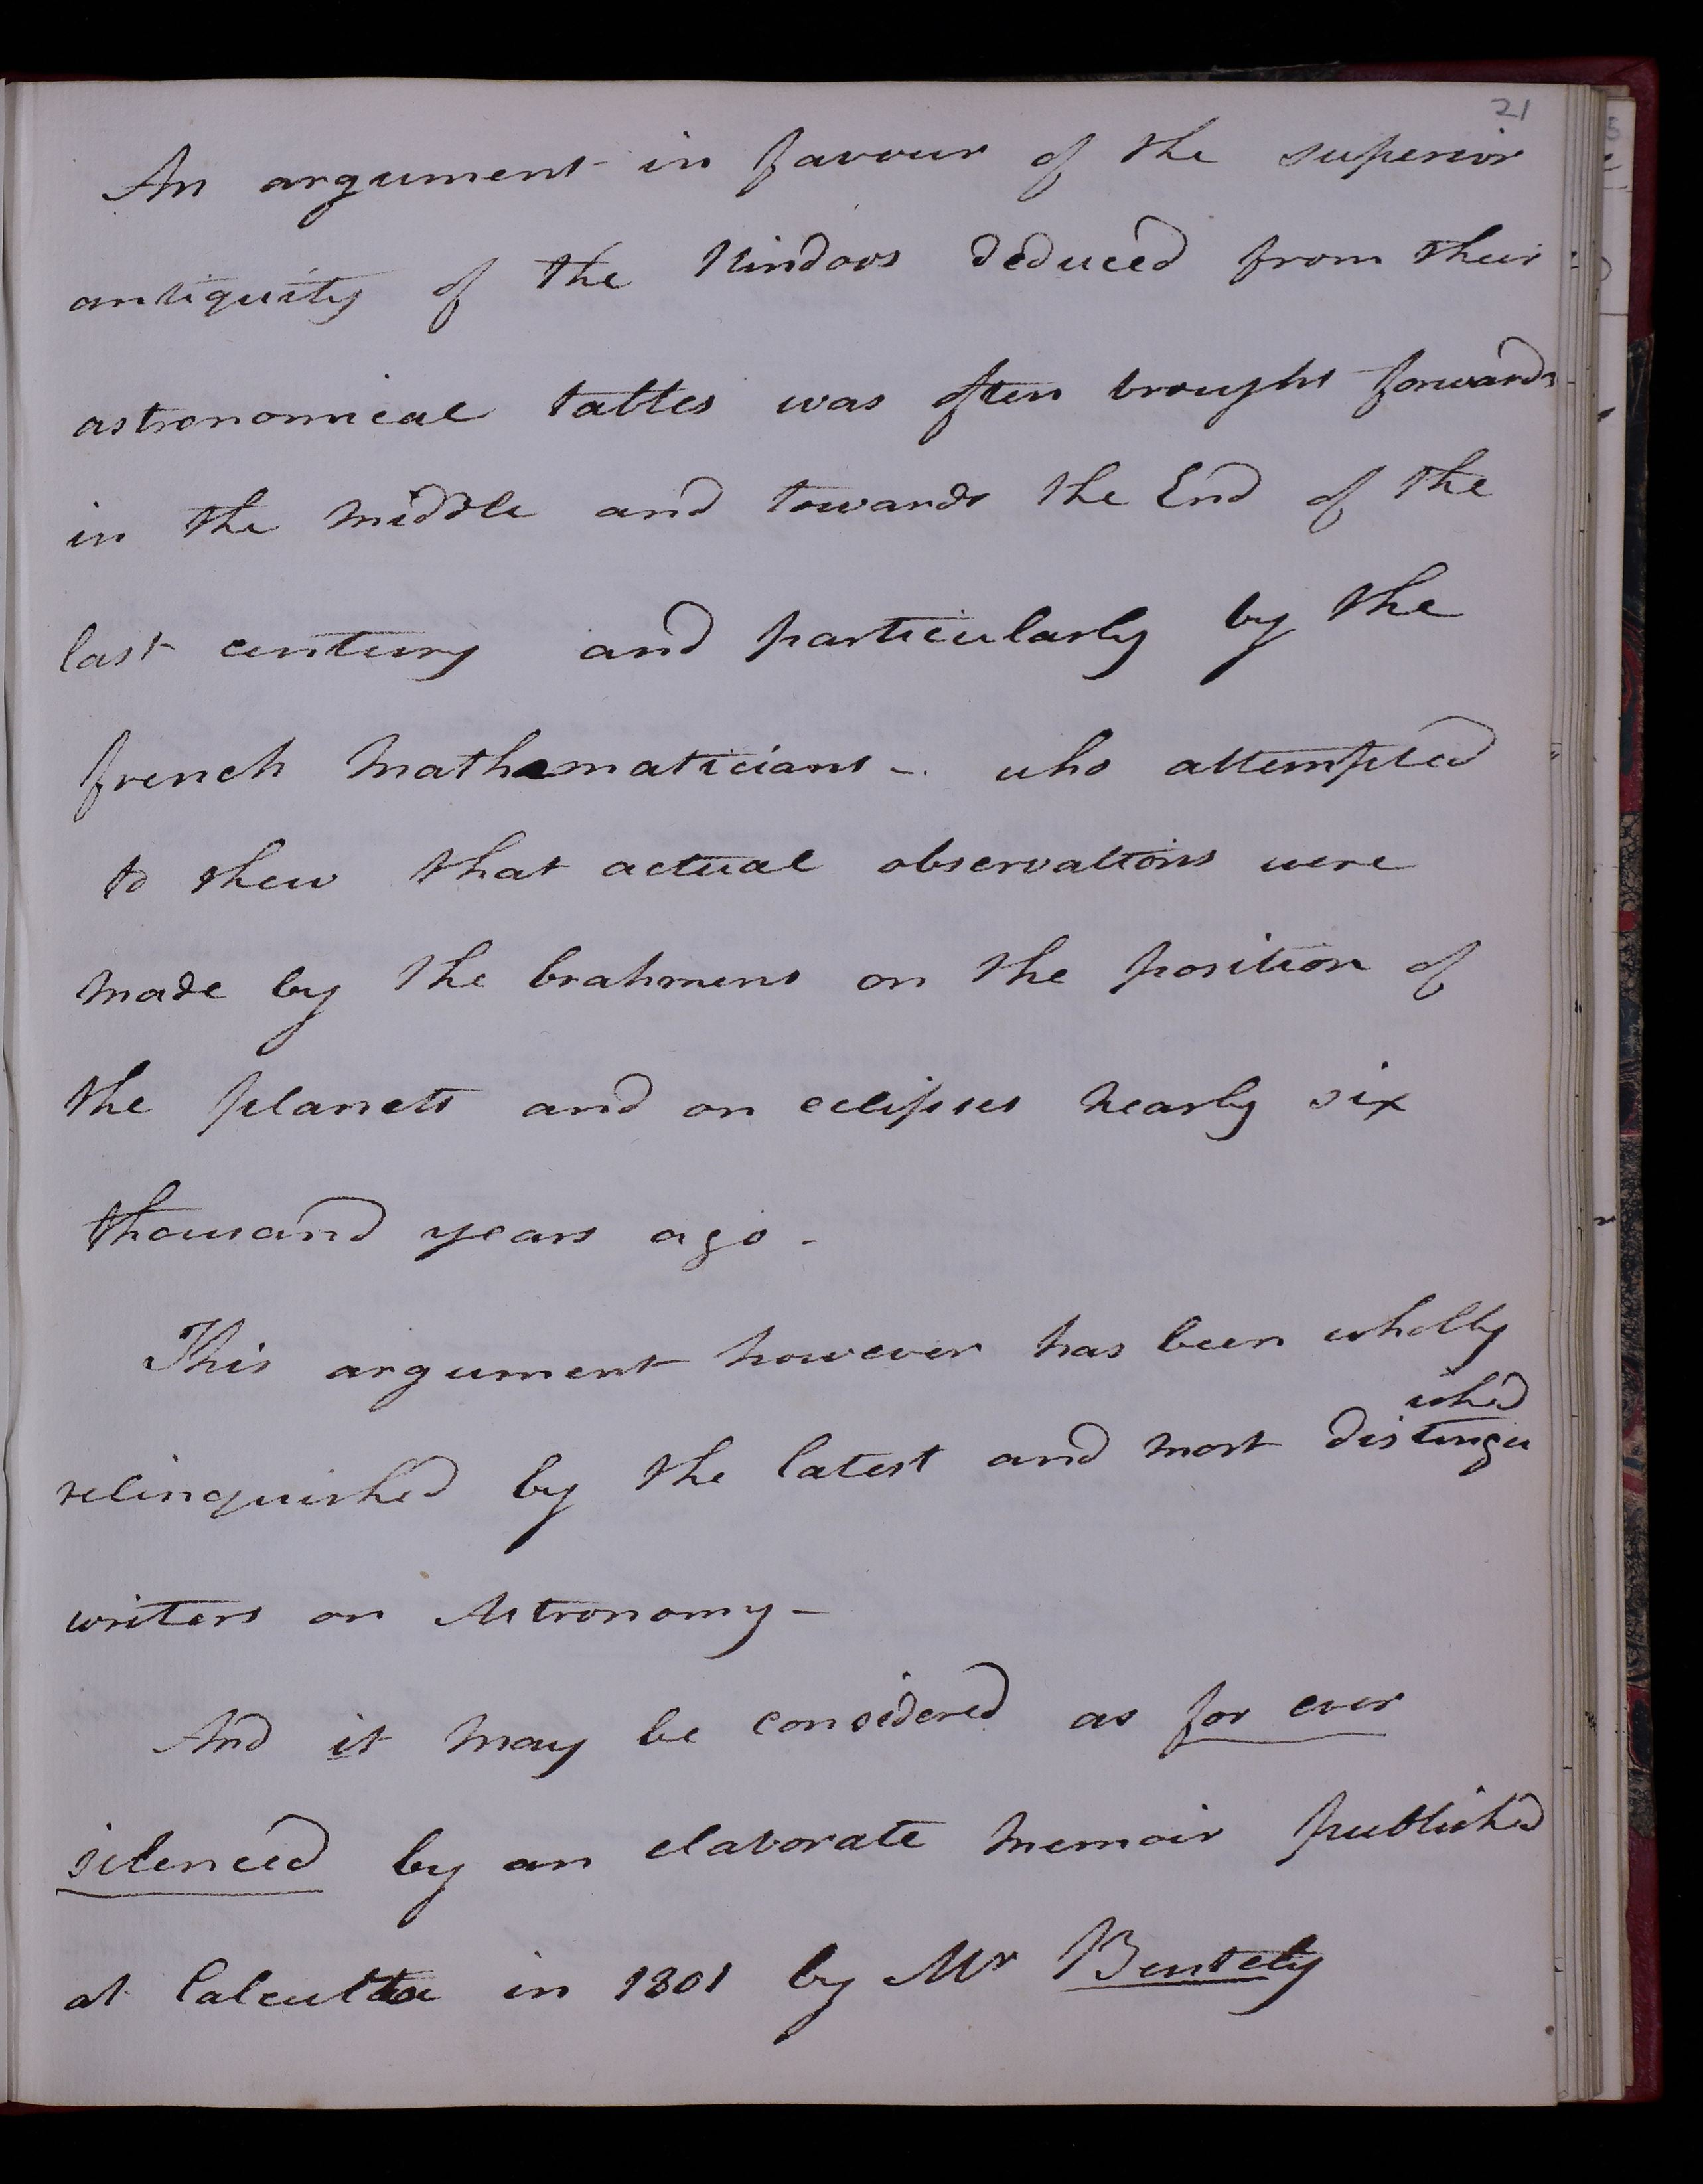 21
An argument in favour of the superior
antiquity of the Hindoos deduced from their
astronomical tables was often brought forwards
in the middle and towards the End of the
last century and particularly by the
french Mathematicians -. who attempted
to shew that actual observations were
made by the brahmens on the position of
the planets and on eclipses nearly six
thousand years ago -
This argument however has been wholly
relinquished by the latest and most distinguished
writers on Astronomy -
And it may be considered as for ever
silenced by an elaborate memoir published
at Calcutta in 1801 by Mr Bentely